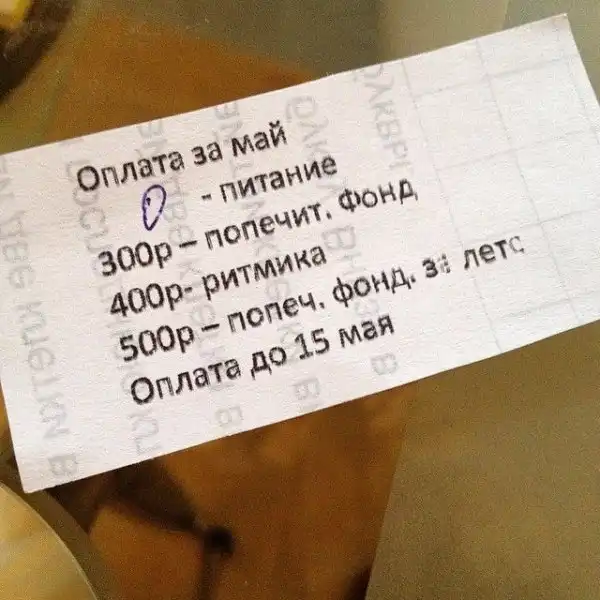 Оплата за май
0 - питание
300р – попечит. фонд
400р- ритмика
500р – попеч. фонд. за лето
Оплата до 15 мая